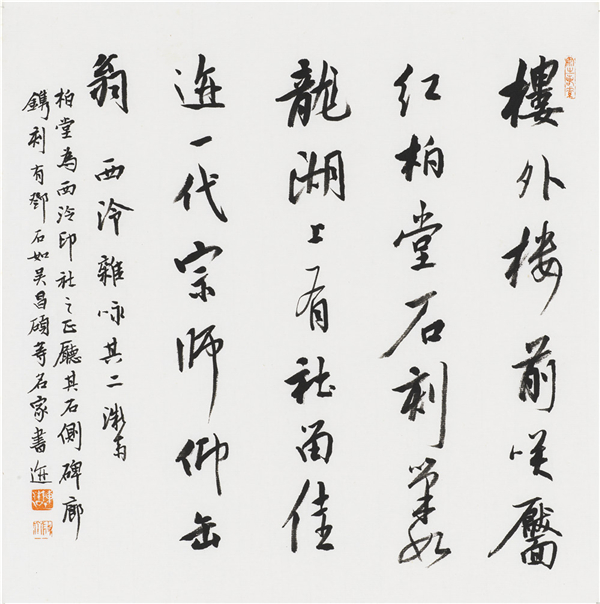 樓外楼前咲靨
红柏堂石刻筆如
龍湖上有社留佳
迹一代宗師仰缶
翁 西泠雜咏其二
柏堂為西泠印社之正廳其石側碑廊
鐫刻有鄧石如吴昌碩等名家書迹